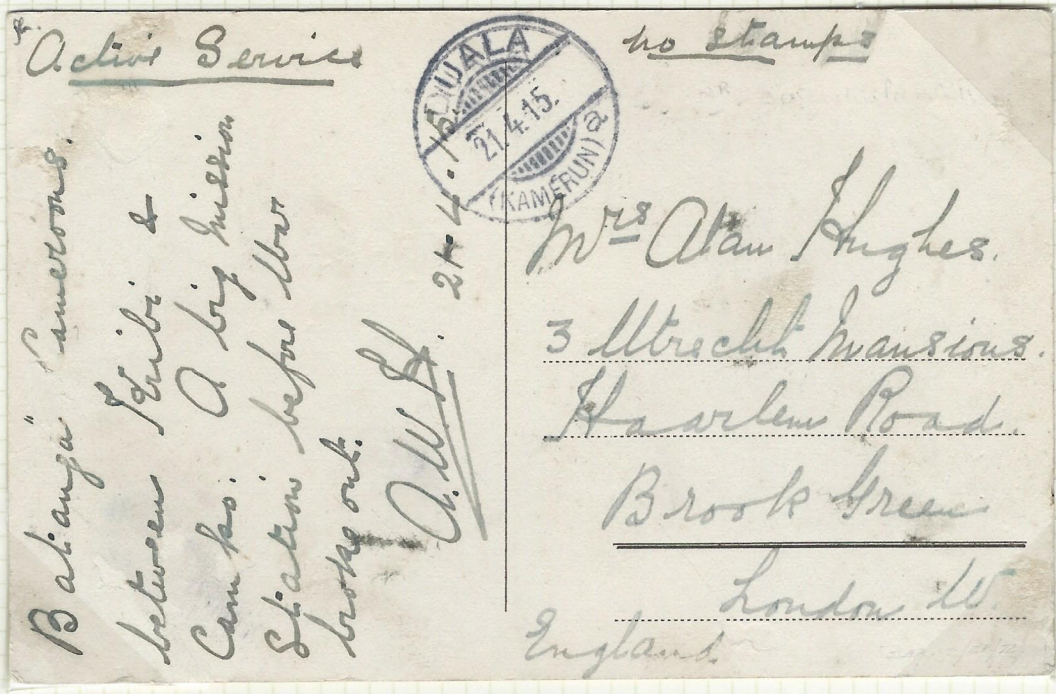 Active Service
no stamps
DUALA
21.4.15.
(KAMERUN) a
Batanga" Cameroons.
between Kribi &
Campo. A big Mission
Station before War
broke out.
A.W.H.
21.4.15
Mrs Alan Hughes.
3 Utrecht Mansions.
Haarlem Road.
Brook Green
London W.
England.